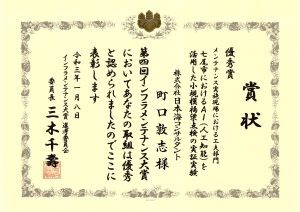 賞状
優秀賞
メンテナンス実施現場における工夫部門
七尾市におけるAI(人工知能)を
活用した小規模橋梁点検の実証実験
株式会社日本海コンサルタント
町口敦志様
第四回インフラメンテナンス大賞
においてあなたの取組は優秀
と認められましたのでここに
表彰します
令和三年一月八日
インフラメンテナンス大賞 選考委員会
委員長 三木千壽